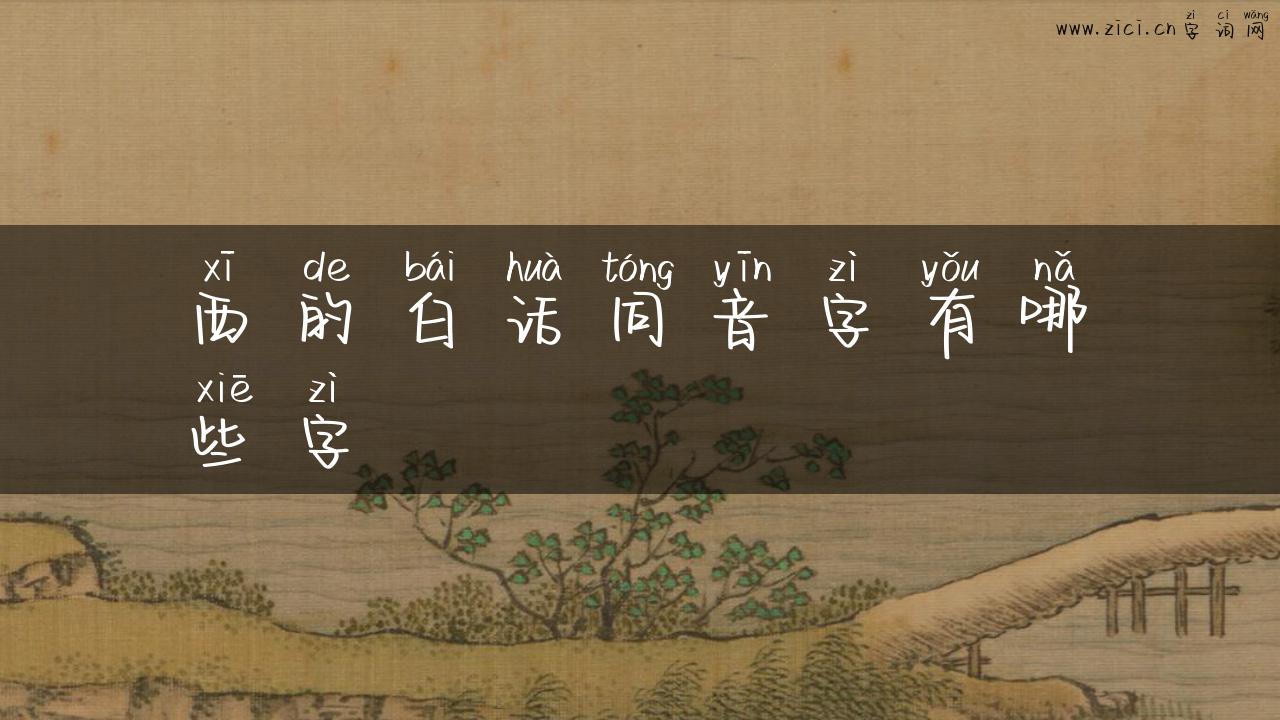 zì cí wǎng
www.zici.cn字词网
xī de bái huà tóng yīn zì yǒu nǎ
西的白话同音字有哪
xiē zì
些字